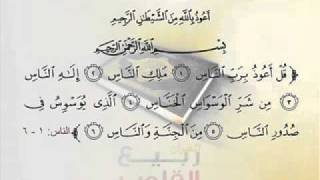 أَعُوذُ بِاللَّهِ مِنَ الشَّيْطَانِ الرَّجِيمِ
بِسْمِ اللَّهِ الرَّحْمَٰنِ الرَّحِيمِ
﴿ قُلْ أَعُوذُ بِرَبِّ النَّاسِ ١ مَلِكِ النَّاسِ ٢ إِلَٰهِ النَّاسِ
٣ مِن شَرِّ الْوَسْوَاسِ الْخَنَّاسِ ٤ الَّذِي يُوَسْوِسُ فِي
صُدُورِ النَّاسِ ٥ مِنَ الْجِنَّةِ وَالنَّاسِ ٦ ﴾ الناس: ١ - ٦
ربيع
القلوب